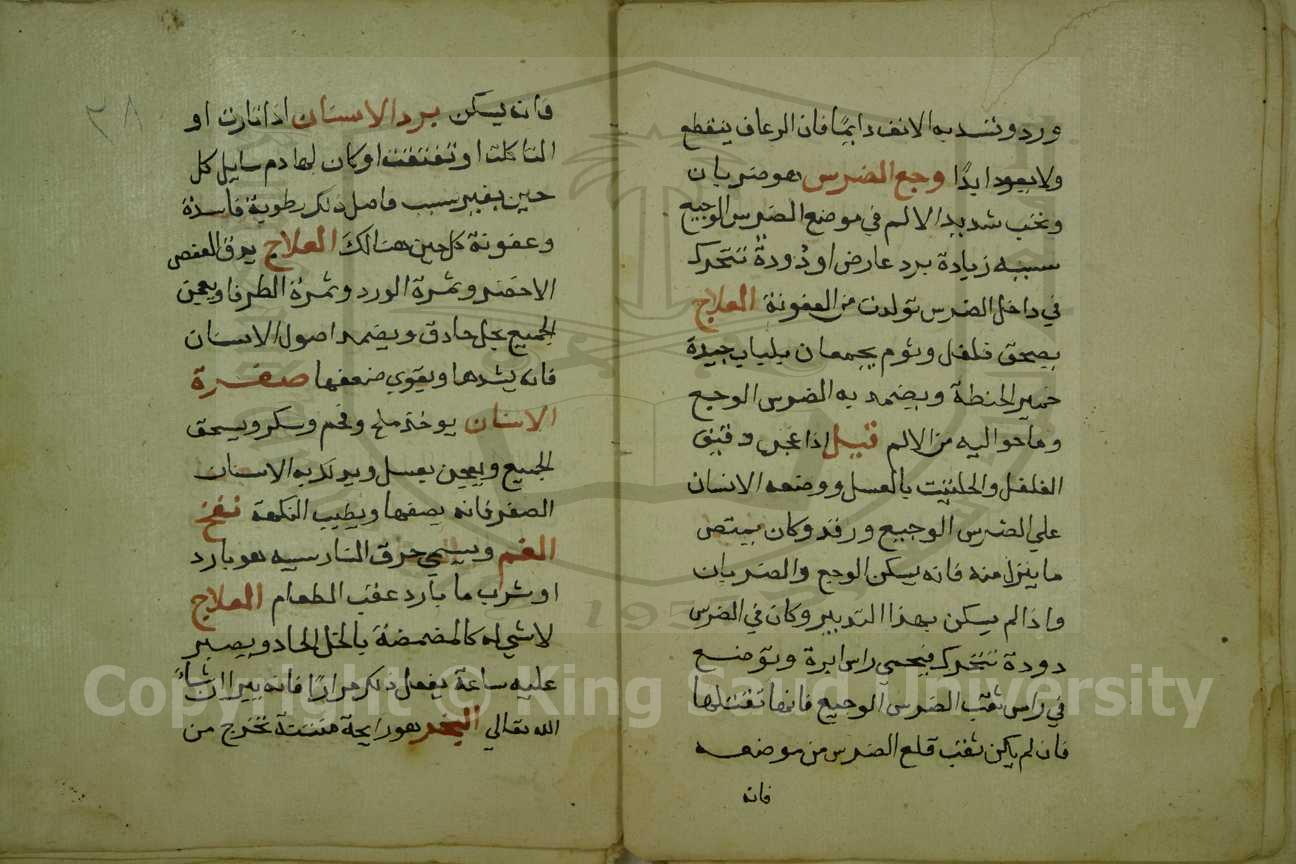 ورد وتشد به الانف دايمًا فان الرعاف ينقطع
ولا يعود ابدًا وجع الضرس هو ضربان
ونخب شديد الالم في موضع الضرس الوجيع
سببه زيادة برد عارض او دودة تتحرك
في داخل الضرس تولدت من العفونة العلاج
يصحق فلفل وثوم يجمعان بلباب جيدة
خمير الحنطة ويضمد به الضرس الوجع
وما حواليه من الالم قيل اذا عجن دقيق
الفلفل والحلتيت بالعسل ووضعه الانسان
علي الضرس الوجيع ورقد وكان يبتص
ما ينزل منه فانه يسكن الوجع والضربان
واذا لم يسكن بهذا التدبير وكان في الضرس
دودة تتحرك فيحمي راس ابرة وتوضع
في راس ثقب الضرس الوجيع فانها تقتلها
فان لم يكن ثقب قلع الضرس من موضعه
فانه
٢٨
فانه يسكن برد الاسنان اذا تارت او
التاكلت او تفتتت او كان لها دم سايل كل
حين بغير سبب فاصل ذلك رطوبة فاسدة
وعفونة كل حين هنالك العلاج يدق العفص
الاخضر وثمرة الورد وثمرة الطرفا ويعجن
الجميع بخل حادق ويضمد اصول الاسنان
فانه يشدها ويقوي ضعفها صفرة
الاسنان يوخذ ملح وفحم وسكر ويسحق
الجميع ويعجن بعسل ويدلك به الاسنان
الصفر فانه يصفها ويطيب النكهة نفخ
الفم ويسمي حرق النار سببه هو بارد
او شرب ما بارد عقب الطعام العلاج
لا شي له كالمضمضة بالخل الحاد ويصبر
عليه ساعة يفعل ذلك مرارًا فانه يبرا ان شاء
الله تعالي البخر هو رايحة منتنة تخرج من
Copyright © King Saud University
195